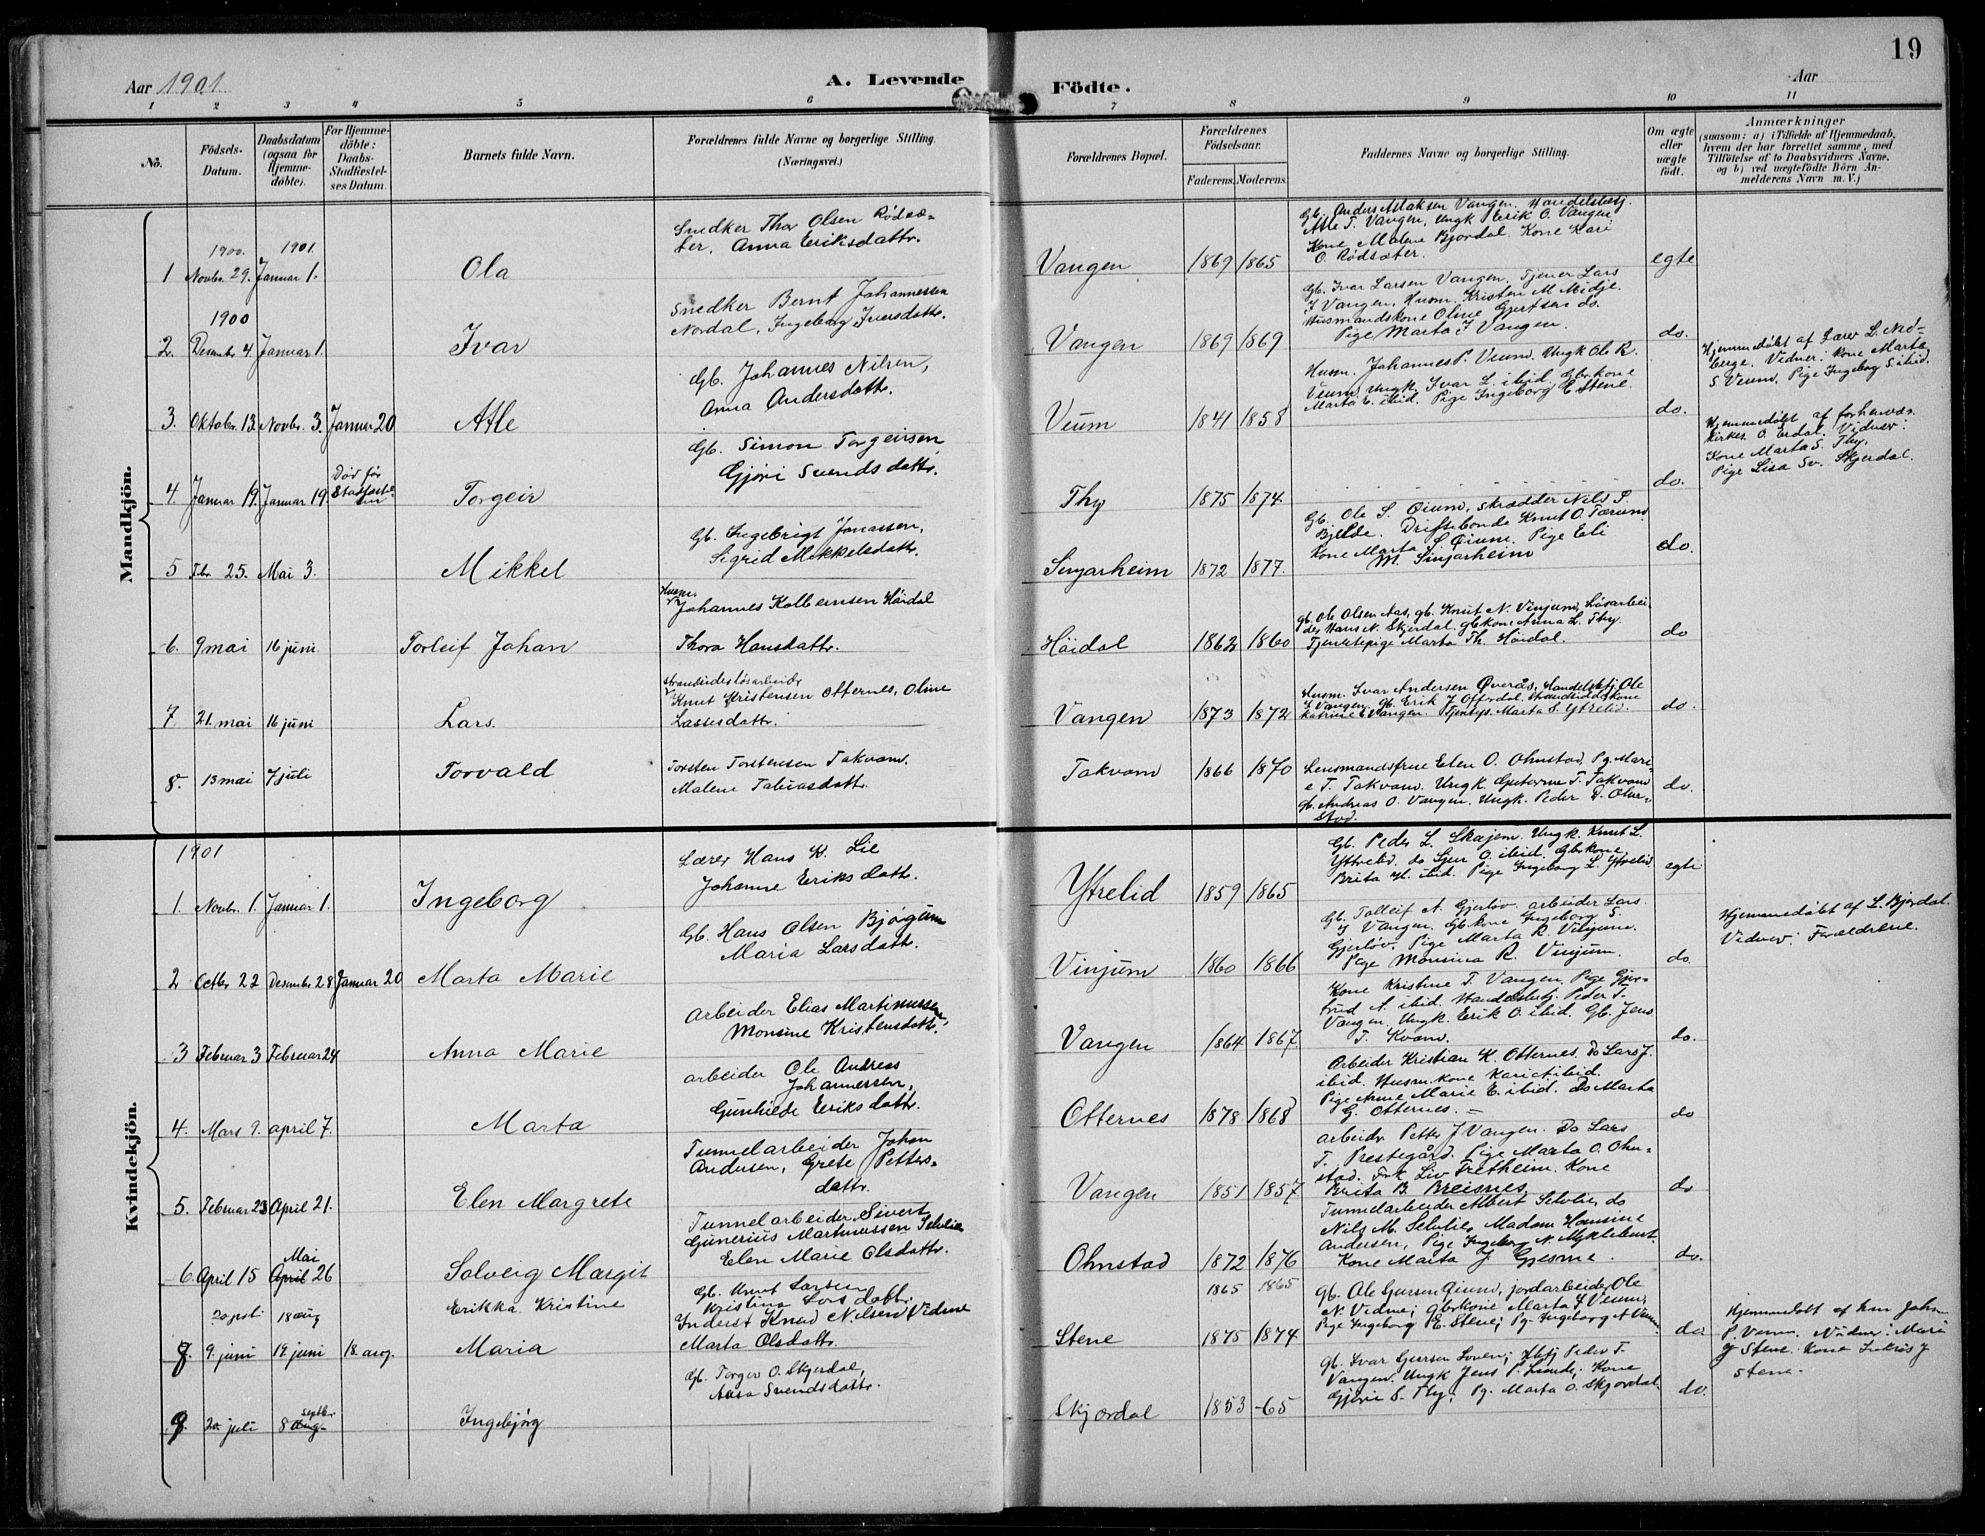 19
Aar 1901
A. Levende Födte.
Aar
1 2 3 4 5 6 7 8 9 10 11
No.
Födsels-Datum.
Daabsdatum (ogsaa for Hjemme-døbte).
For Hjemme-döbte: Daabs-Stadfæstel-ses Datum.
Barnets fulde Navn.
Forældrenes fulde Navne og borgerlige Stilling. (Næringsvei.)
Forældrenes Bopæl.
Forældrenes Födselsaar.
Faderens. Moderens.
Faddernes Navne og borgerlige Stilling.
Om ægte eller uægte födt.
Anmærkninger
(saasom: a) i Tilfælde af Hjemmedaab,
hvem der har forrettet samme, med
Tilföielse af to Daabsvidners Navne,
og b) ved uægtefödte Börn An-
melderens Navn m. V.)
Mandkjön.
1900. 1901.
1 Novbr. 29. Januar 1. Ola
Snedker Thor Olsen Rödsæ-
ter, Anna Eriksdattr.
Vangen 1869 1865
Gb. Anders Aslaksen Vangen. Handelsbetj.
Atle T. Vangen, Ungk Erik O. Vangen
Kone Malene Bjordal. Kone Kari
O. Rödsæter.
egte
1900
2. Desember 4. Januar 1. Ivar
Snedker Bernt Johannessen
Nordal, Ingeborg Iversdattr.
Vangen 1869 1869
Gb. Ivar Larsen Vangen, Tjener Lars
I Vangen, Husm. Kristen M. Midje.
Husmandskone Oline Gjertsen do.
Pige Marta I Vangen.
do.
3. Oktober 13. Novbr. 3. Januar 20 Atle
Gb. Johannes Nilsen,
Anna Andersdattr.
Veum 1841 1858
Husm. Johannes P. Veum. Ungk Ole R.
Veum, Ungk. Ivar L. ibid. Gbrkone
Marta E. ibid. Pige Ingeborg E Stene.
do.
Hjemmedöbt af Lærer L. Ned-
berge. Vidner: Kone Marta
S Veum, Pige Ingeborg S. ibid.
4. Januar 19. Januar 19. Död før Stadfæstel- sen Torgeir
Gb. Simon Torgeirsen,
Gjöri Svendsdattr.
Thy 1875 1874
do.
Hjemmedöbt af forhenvær.
Kirkes. O. Erdal. Vidner:
Kone Marta S. Thy,
Pige Lisa Sv. Skjerdal.
5 Fbr. 25. Mai 3. Mikkel
Gb. Ingebrigt Jonassen,
Sigrid Mikkelsdattr.
Sinjarheim 1872 1877.
Gb. Ole S. Öium, skrædder Nils P.
Bjelde. Driftebonde Knut O. Tærum
Kone Marta S Öium. Pige Eli
M. Sinjarheim
do.
6. 9 mai 16 juni. Torleif Johan
Husm. Johannes Kolbeinsen Höidal
Thora Hansdattr.
Höidal 1862 1860
gb. Ole Olsen Aas, gb. Knut N. Vinjum, Lösarbei-
der Hans N. Skjerdal. gbkone Anna L. Thy.
Tjenestepige Marta Th. Höidal.
do
7 21. mai 16 juni Lars.
Strandsides lösarbeider
Knut Kristensen Otternes, Oline
Lassesdattr.
Vangen 1873 1872
Husm. Ivar Andersen Överås, Handelsbtj. Ole
I Vangen, gb. Erik J Offerdal. Strandsiddekone
Katrine E Vangen. Tjentp. Marta S. Ytrelid.
do.
8. 13 mai 7 juli Torvald
Torsten Torstensen Takvam.
Malene Tobiasdattr.
Takvam 1866 1870
Lensmandsfrue Elen O. Ohnstad, Pg. Mari-
e T. Takvam. Ungk. Guttorm T. Takvam
gb. Andreas O. Vangen. Ungk. Peder P. Ohn-
stad.
do.
Kvindekjön.
1901
1. Novbr. 1. Januar 1. Ingeborg
Lærer Hans K. Lie
Johanne Eriksdattr.
Ytrelid 1859 1865
Gb. Peder L. Skajem. Ungk. Knut L.
Yttrelid. do Sjur O. ibid. Gbrkone
Brita H. ibid. Pige Ingeborg L. Ytrelid
egte
2 Octbr 22 Desember 28 Januar 20 Marta Marie
Gb. Hans Olsen Bjørgum
Maria Larsdattr.
Vinjum 1860 1866
Gb. Tolleif A. Gjerløv. arbeider Lars
I Vangen. Gbkone Ingeborg S.
Gjerløv. Pige Marta R. Vinjum.
Pige Monsina R. Vinjum.
do.
Hjemmedöbt af L. Bjordal.
Vidner: Forældrene.
3 Februar 3 Februar 24 Anna Marie
Arbeider Elias Martinussen,
Monsine Kristensdattr.
Vangen 1864 1867.
Kone Kristine T. Vangen. Pige Gjer-
trud A. ibid. Handelsbetj. Peder T.
Vangen, Ungk. Erik O. ibid. Gb. Jens
T. Kvam.
do.
4. Mars 9. april 7. Marta
arbeider Ole Andreas
Johannessen,
Gunhilde Eriksdattr.
Otternes 1878 1868
Arbeider Kristian K. Otternes. Do Lars J.
ibid. Husm. kone Kari A ibid.
Pige Anne Marie E. ibid. Do Marta
G. Otternes. —
do
5. Februar 23 April 21. Elen Margrete
Tunnelarbeider Johan
Andersen, Grete Petters-
dattr.
Vangen 1851 1857
arbeidr Petter J Vangen. Do Lars
T. Prestegård. Pige Marta O. Ohn-
stad. Frk Liv Fretheim. Kone
Brita B. Breisnes
do
6. April 15 Mai April 26 Solveig Margit
Tunnelarbeider Sivert
Gunerius Martinussen Selvlie
Elen Marie Olsdattr.
Ohnstad 1872 1876
Tunnelarbeider Albert Selvlie, do
Nils M. Selvlie, Madam Hansine
Andersen, Pige Ingeborg N. Myklebust.
Kone Marta J Gjesme.
do.
18 aug Erikka Kristine
Gb. Knut Larsen
Kristina Larsdattr.
1865 1865
gb. Ole Sjursen Öium, jordarbeider Ole
N. Vidme; gbrkone Marta I Veum,
Pige Ingeborg E. Stene; Pg. Ingeborg A Veum.
8. 9. juni 14 juni 18. aug. Maria
Inderst Knud Nilsen Vidme
Marta Olsdattr.
Stene 1875 1874
do.
Hjemmedöbt af hm Johan
P. Veum. Vidner: Mari
J Stene. Kone J
Stene.
9. 20 juli 8 septbr. aug. Ingebjörg
Gb. Torger O. Skjerdal,
Anna Svendsdattr.
Skjærdal 1853 -65
gb. Ivar Sjursen Loven; Hbtj Peder T.
Vangen. Ungk Jens P. Lunde; Kone
Gjöri S. Thy, Pg. Marta O. Skjerdal.
do.